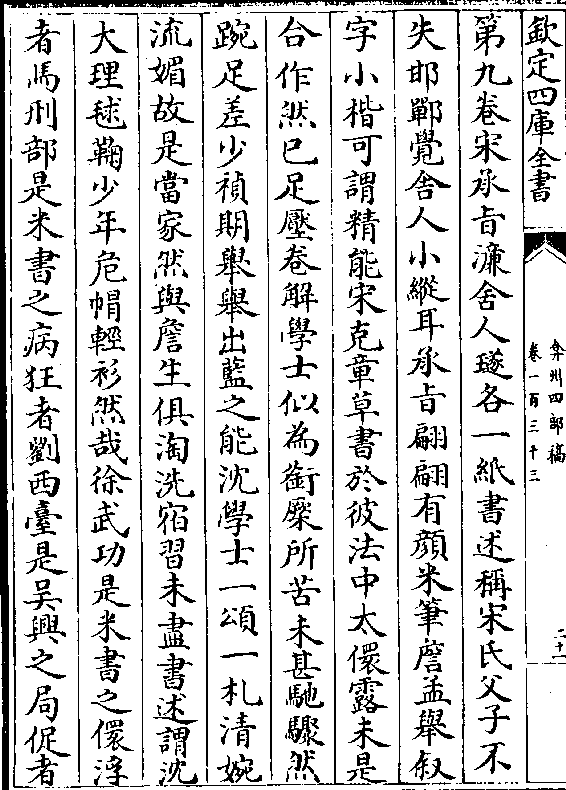 欽定四庫全書
弇州四部稿
卷一百三十三
二十一
第九卷宋承旨濂舍人璲各一紙書述稱宋氏父子不
失邯鄲覺舍人小縱耳承旨翩翩有顔米筆詹孟舉叙
字小楷可謂精能宋克章草書於彼法中太儇露未是
合作然已足壓卷解學士似為銜橜所苦未甚馳驟然
踠足差少禎期舉舉出藍之能沈學士一頌一札清婉
流媚故是當家然與詹生俱淘洗宿習未盡書述謂沈
大理毬鞠少年危帽輕衫然哉徐武功是米書之儇浮
者馬刑部是米書之病狂者劉西臺是吴興之局促者